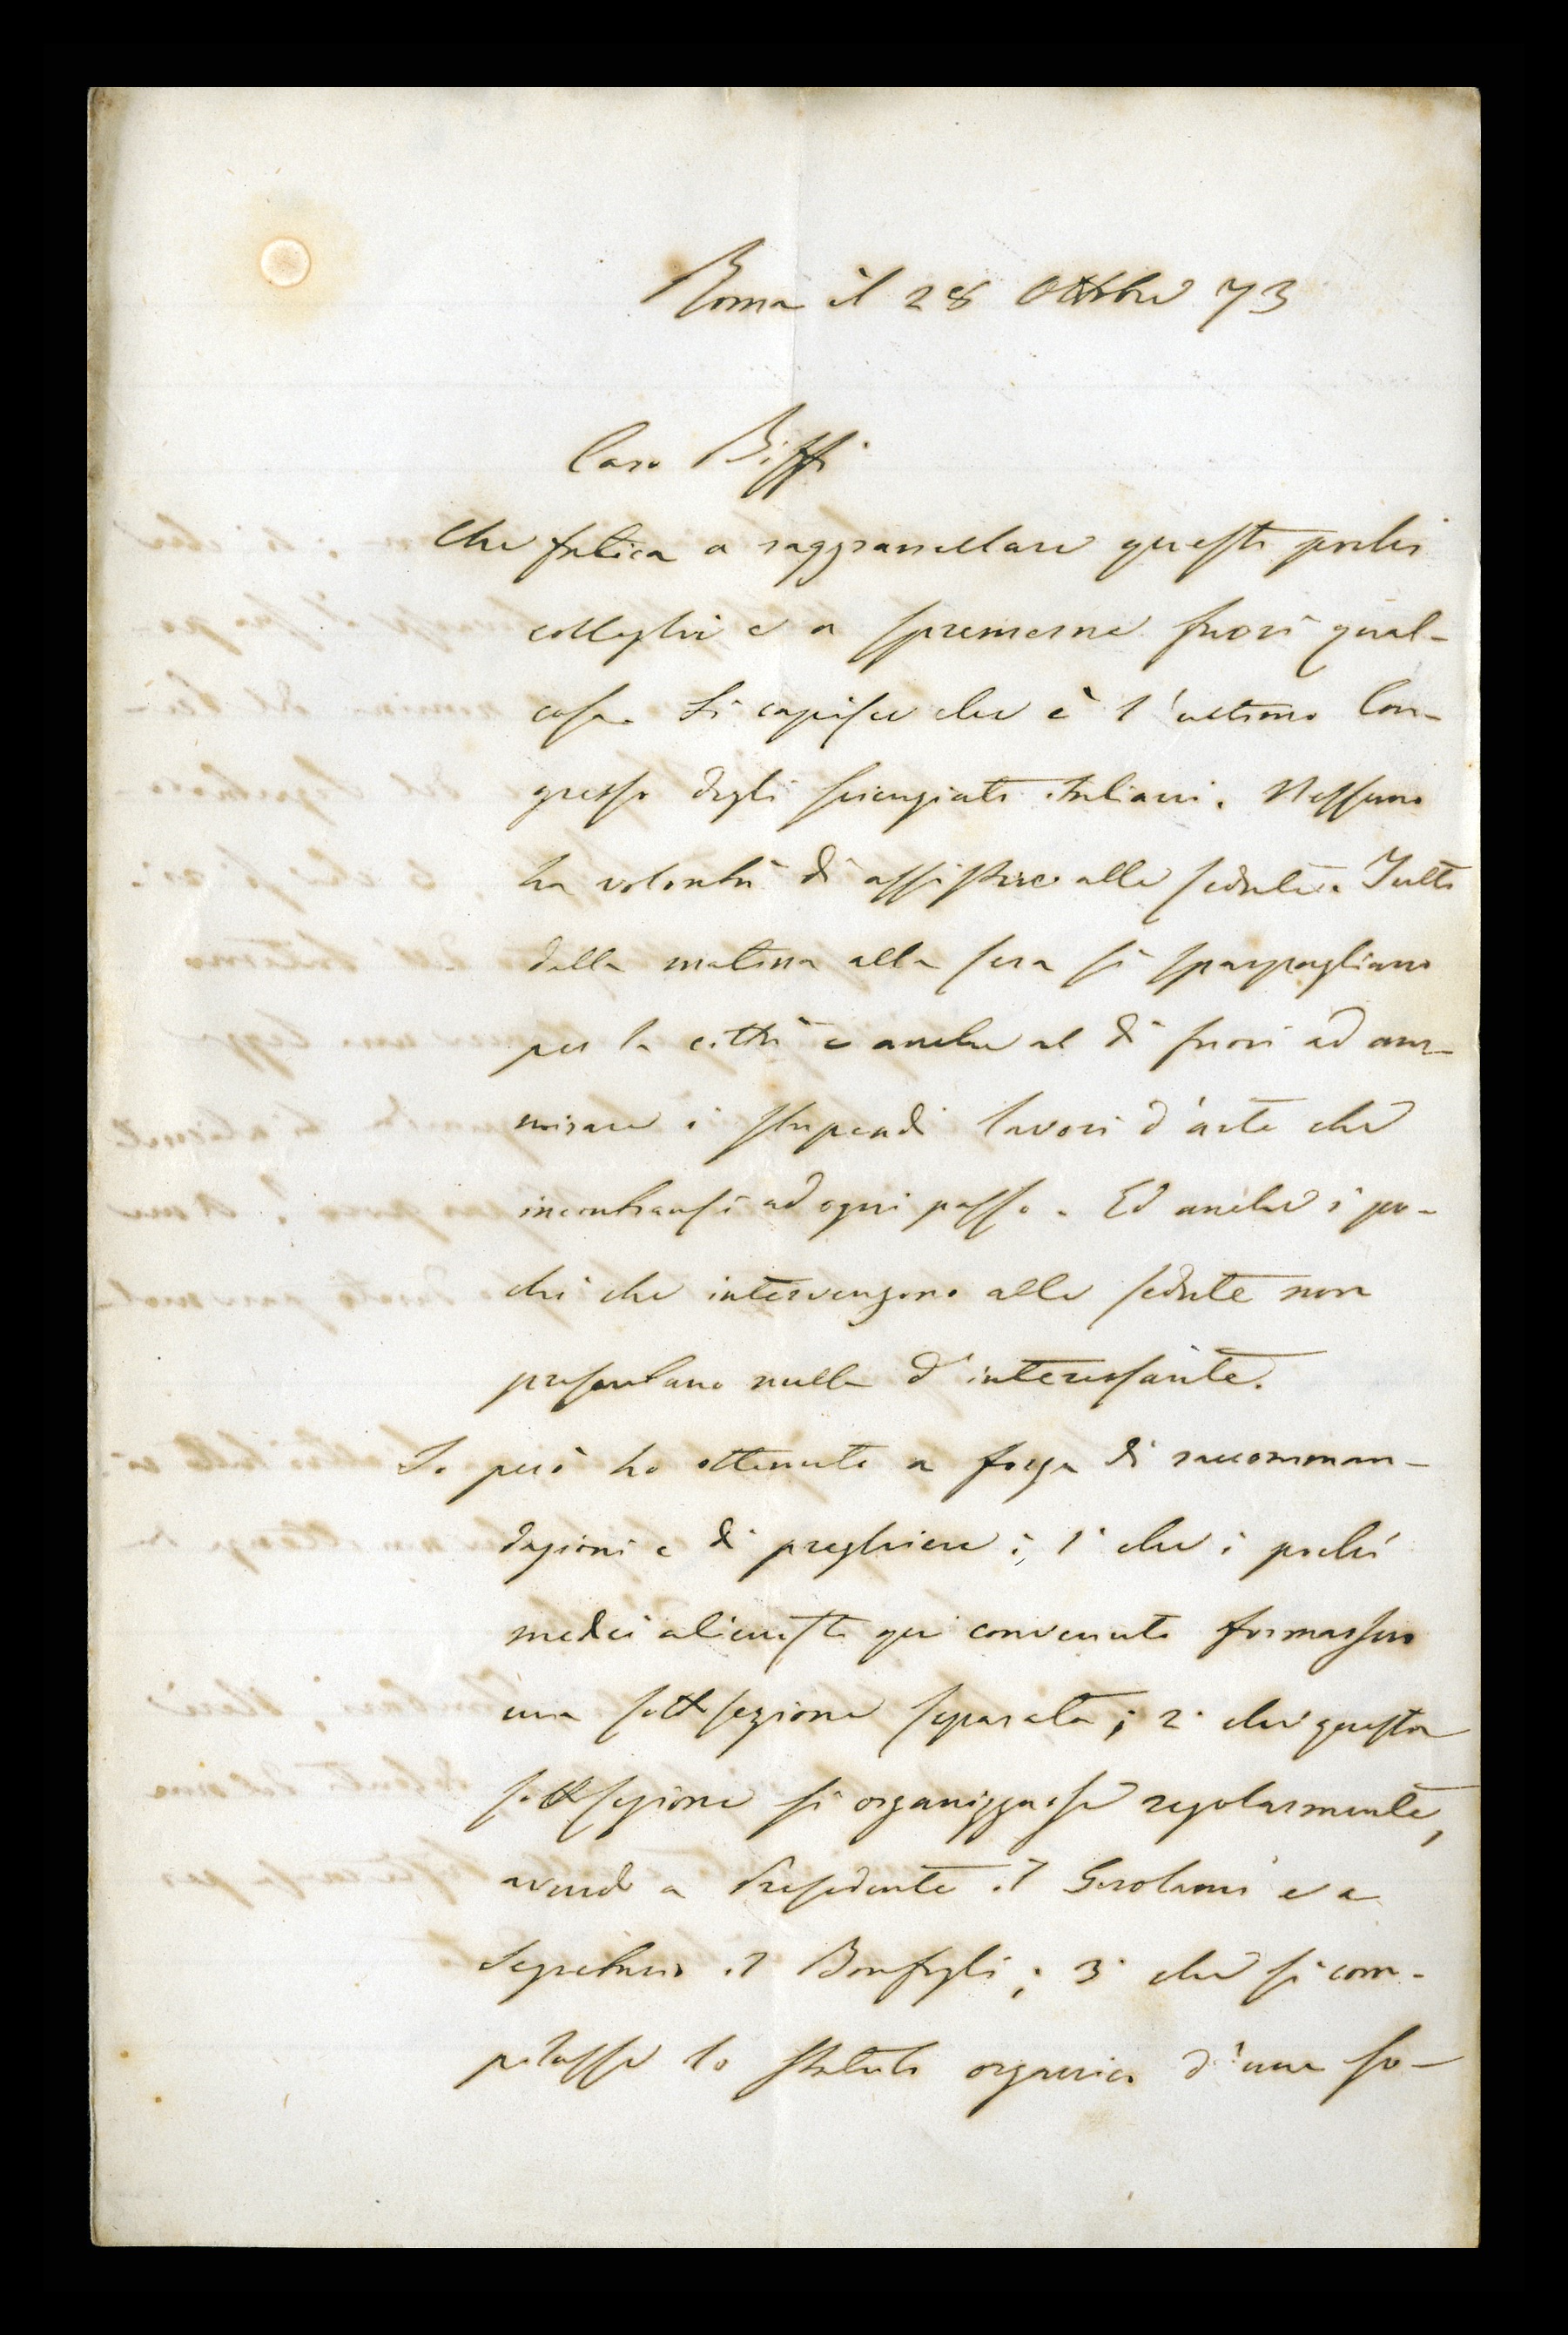 Roma il 28 Ottobre 73
Caro Biffi
Che fatica a raggranellare questi pochi
colleghi e a spremerne fuori qual-
cosa. Si capisce che è l'ultimo Con-
gresso degli scienziati italiani. Nessuno
ha volontà di assistere alle sedute. Tutti
dalla matina alla sera si sparpagliano
per la città e anche al di fuori ad am-
mirare i stupendi lavori d'arte che
incontransi ad ogni passo. Ed anche i po-
chi che intervengono alle sedute non
presentano nulla d'interessante.
Io però ho ottenuto a forza di raccoman-
dazioni e di preghiere: 1° che i pochi
medici alienisti qui convenuti formassero
una sottosezione separata; 2° che questa
sottosezione si organizzasse regolarmente,
avendo a Presidente il Girolami e a
Segretario il Bonfigli; 3° che si com-
pilasse lo statuto organico d'una so-